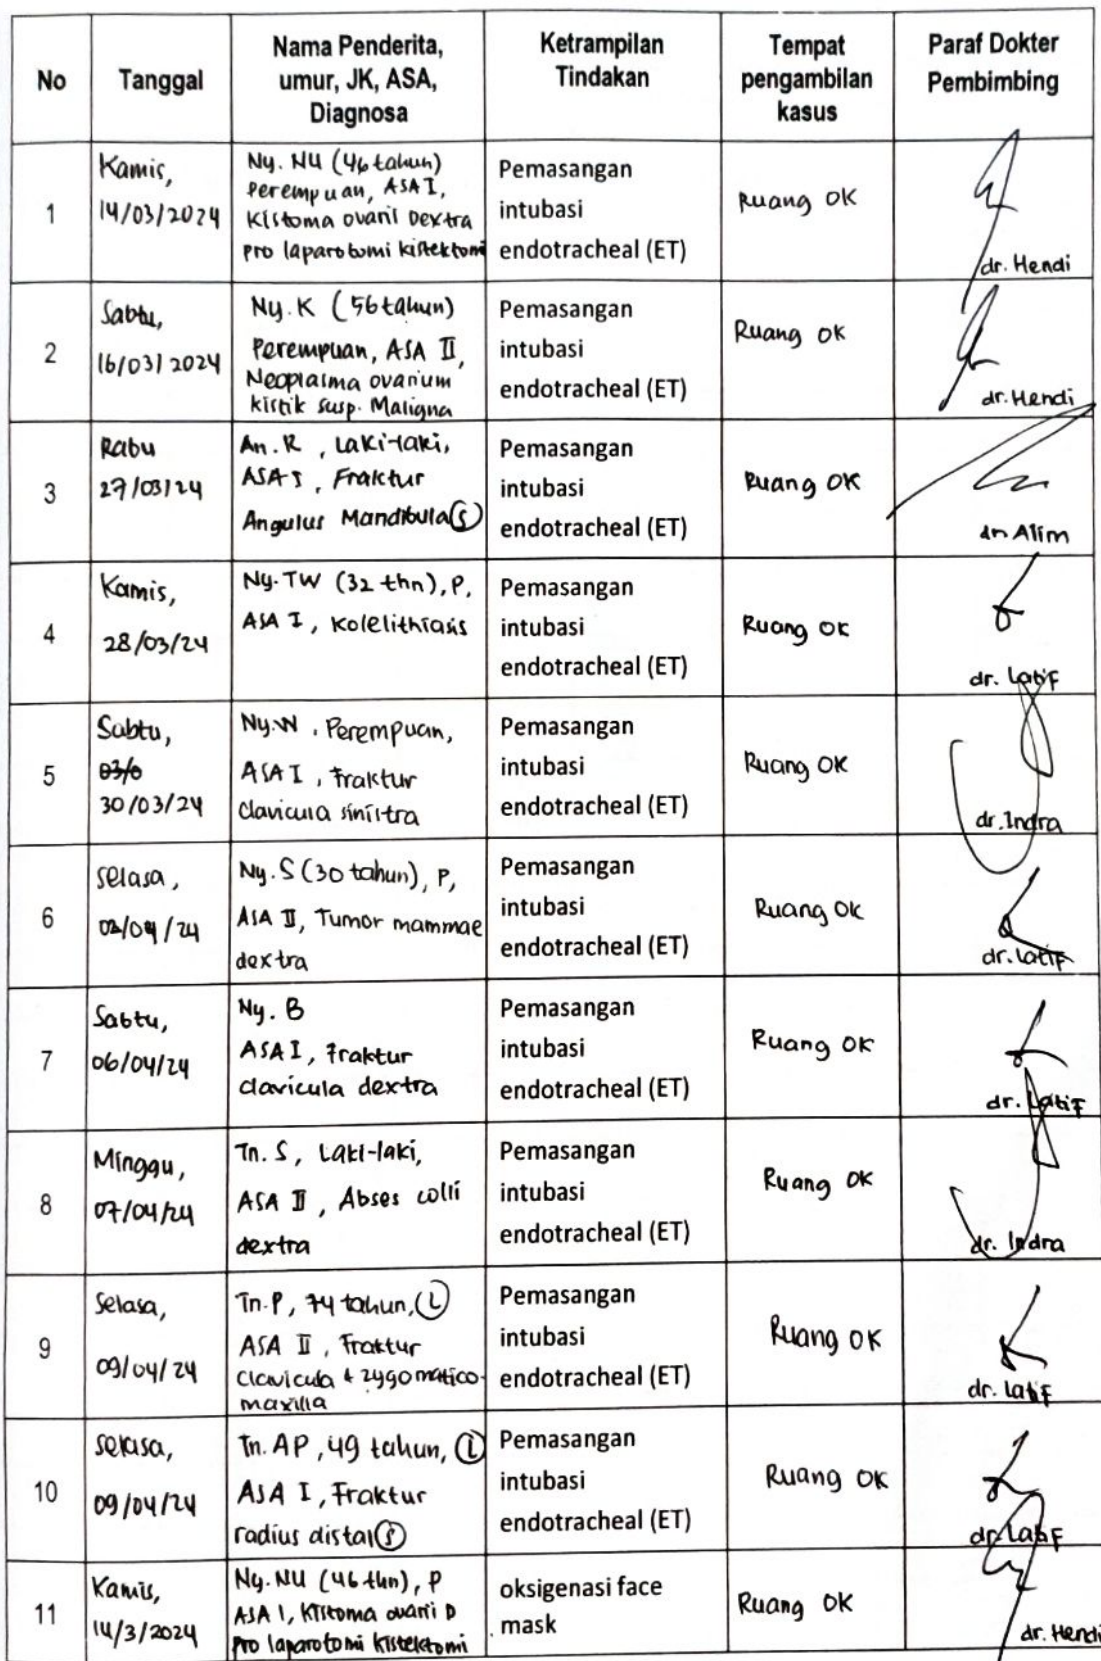 No
Tanggal
Nama Penderita,
umur, JK, ASA,
Diagnosa
Ketrampilan
Tindakan
Tempat
pengambilan
kasus
Paraf Dokter
Pembimbing
1
Kamis,
14/03/2024
Ny. NU (46 tahun)
Perempuan, ASA I,
Kistoma ovarii Dextra
pro laparotomi kistektomi
Pemasangan
intubasi
endotracheal (ET)
Ruang OK
dr. Hendi
2
Sabtu,
16/03/2024
Ny. K (56 tahun)
Perempuan, ASA II,
Neoplasma ovarium
kistik susp. Maligna
Pemasangan
intubasi
endotracheal (ET)
Ruang OK
dr. Hendi
3
Rabu
27/03/24
An. R, Laki-laki,
ASA I, Fraktur
Angulus Mandibula (S)
Pemasangan
intubasi
endotracheal (ET)
Ruang OK
dr. Alim
4
Kamis,
28/03/24
Ny. TW (32 thn), P,
ASA I, Kolelithiasis
Pemasangan
intubasi
endotracheal (ET)
Ruang OK
dr. Latif
5
Sabtu,
03/0
30/03/24
Ny. W, Perempuan,
ASA I, Fraktur
Clavicula sinistra
Pemasangan
intubasi
endotracheal (ET)
Ruang OK
dr. Indra
6
Selasa,
02/04/24
Ny. S (30 tahun), P,
ASA II, Tumor mammae
dextra
Pemasangan
intubasi
endotracheal (ET)
Ruang OK
dr. Latif
7
Sabtu,
06/04/24
Ny. B
ASA I, Fraktur
clavicula dextra
Pemasangan
intubasi
endotracheal (ET)
Ruang OK
dr. Latif
8
Minggu,
07/04/24
Tn. S, Laki-laki,
ASA II, Abses colli
dextra
Pemasangan
intubasi
endotracheal (ET)
Ruang OK
dr. Indra
9
Selasa,
09/04/24
Tn. P, 74 tahun, (L)
ASA II, Fraktur
Clavicula & zygomatico-
maxilla
Pemasangan
intubasi
endotracheal (ET)
Ruang OK
dr. Latif
10
Selasa,
09/04/24
Tn. AP, 49 tahun, (L)
ASA I, Fraktur
radius distal (S)
Pemasangan
intubasi
endotracheal (ET)
Ruang OK
dr. Latif
11
Kamis,
14/3/2024
Ny. NU (46 thn), P
ASA I, Kistoma ovarii D
Pro laparotomi kistektomi
oksigenasi face
mask
Ruang OK
dr. Hendi